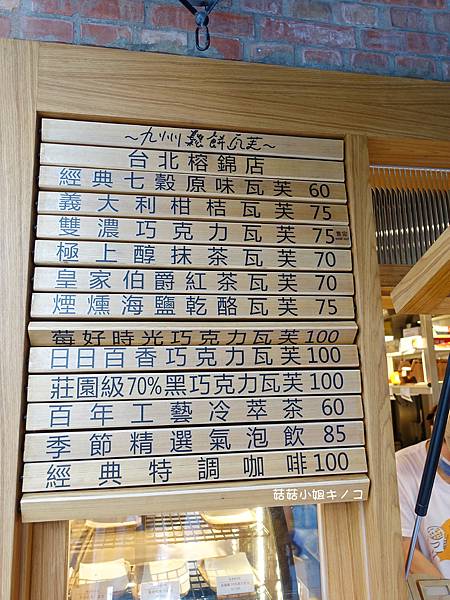 ～九州鬆餅瓦芙～
台北榕錦店
經典七穀原味瓦芙 60
義大利柑桔瓦芙 75
雙濃巧克力瓦芙 75
極上醇抹茶瓦芙 70
皇家伯爵紅茶瓦芙 70
煙燻海鹽乾酪瓦芙 75
莓好時光巧克力瓦芙 100
日日百香巧克力瓦芙 100
莊園級70%黑巧克力瓦芙 100
百年工藝冷萃茶 60
季節精選氣泡飲 85
經典特調咖啡 100
菇菇小姐キノコ